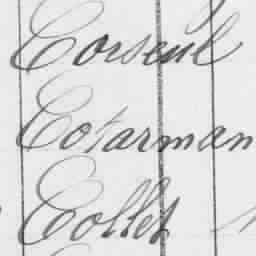 Corseul
Cotarman
Collet